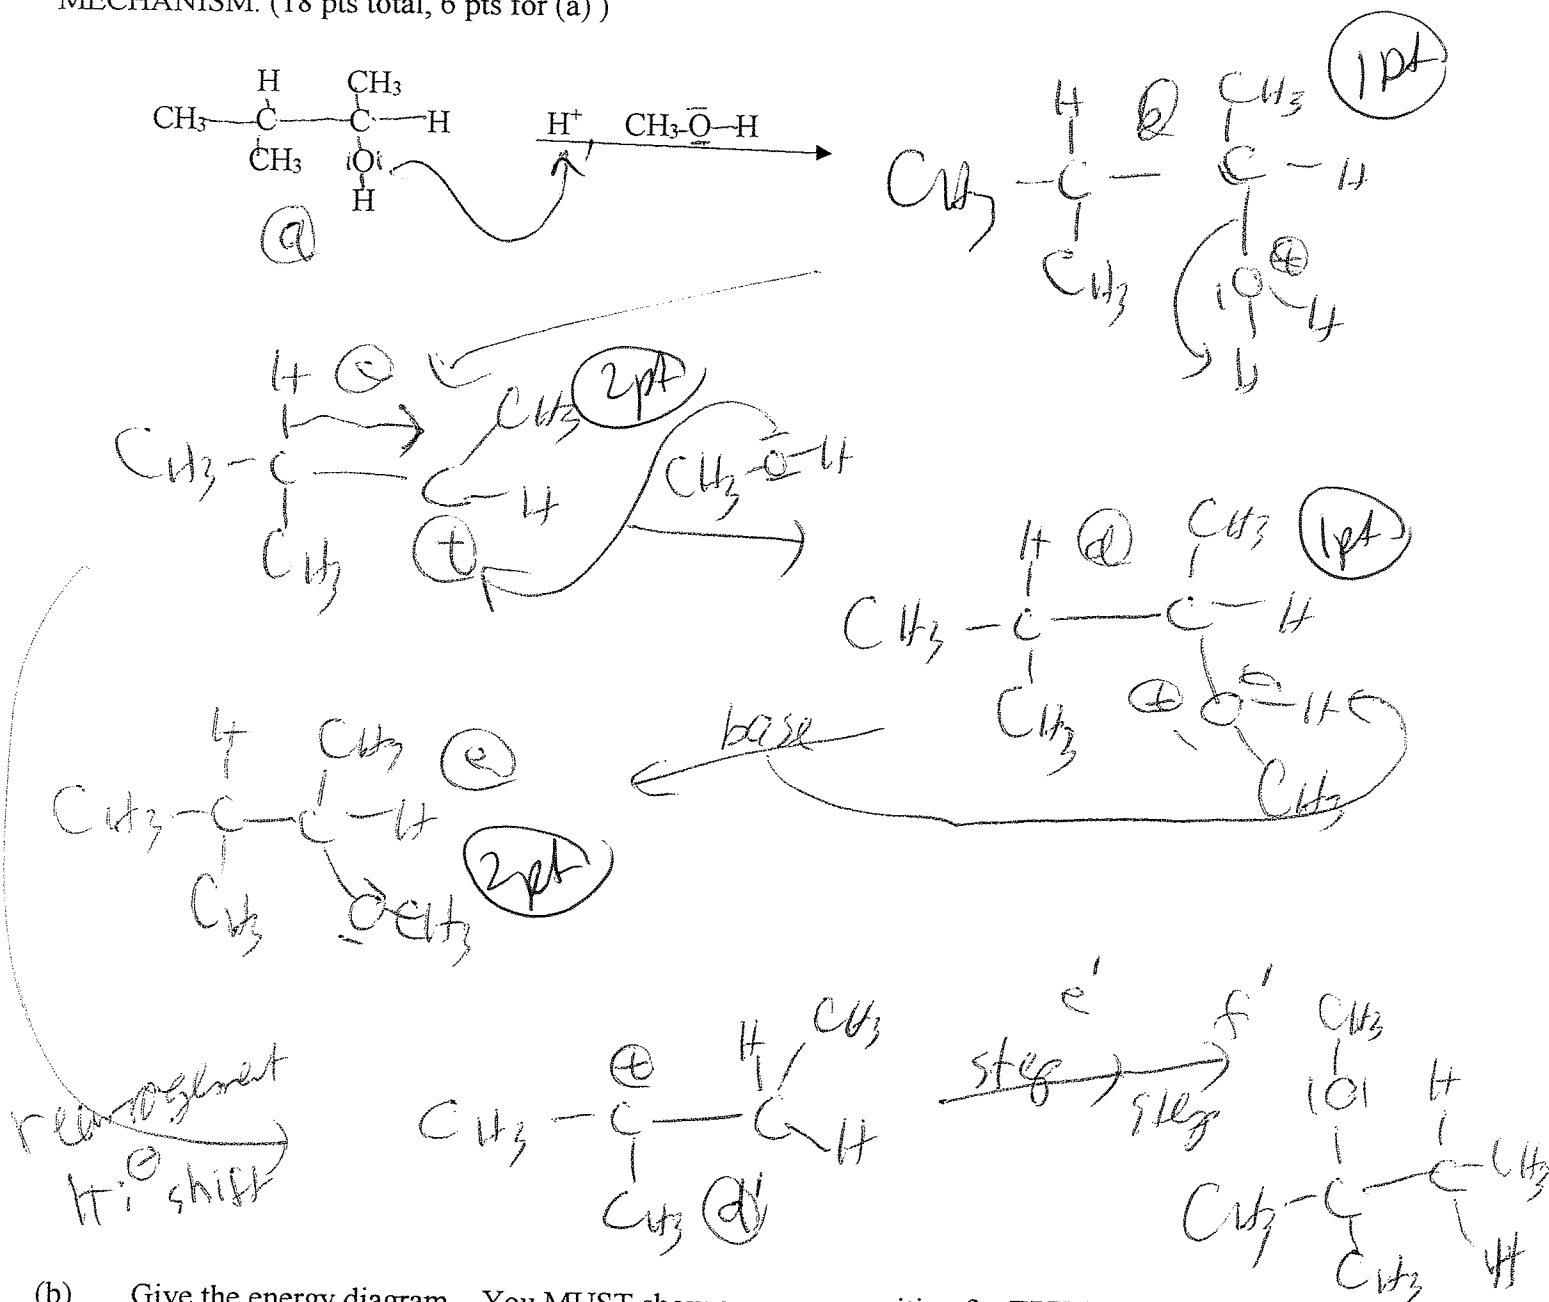 MECHANISM. (18 pts total, 6 pts for (a) )
H CH₃
CH₃—C—C—H
CH₃ IOI
H
H⁺, CH₃-O-H
a
H b CH₃ 1pt
CH₃—C—C—H
CH₃ IO ⊕ H
H
H c CH₃ 2pt
CH₃—C—C—H
CH₃ ⊕
CH₃-O-H
H d CH₃ 1pt
CH₃—C—C—H
CH₃ ⊕ O—H
CH₃
base
H CH₃ e
CH₃—C—C—H
CH₃ O CH₃
2pt
rearrangement
H:⊖ shift
⊕ H CH₃
CH₃—C—C—H
CH₃ d'
e' f'
step step
CH₃
IOI H
CH₃—C—C—CH₃
CH₃ H
(b) Give the energy diagram. You MUST show